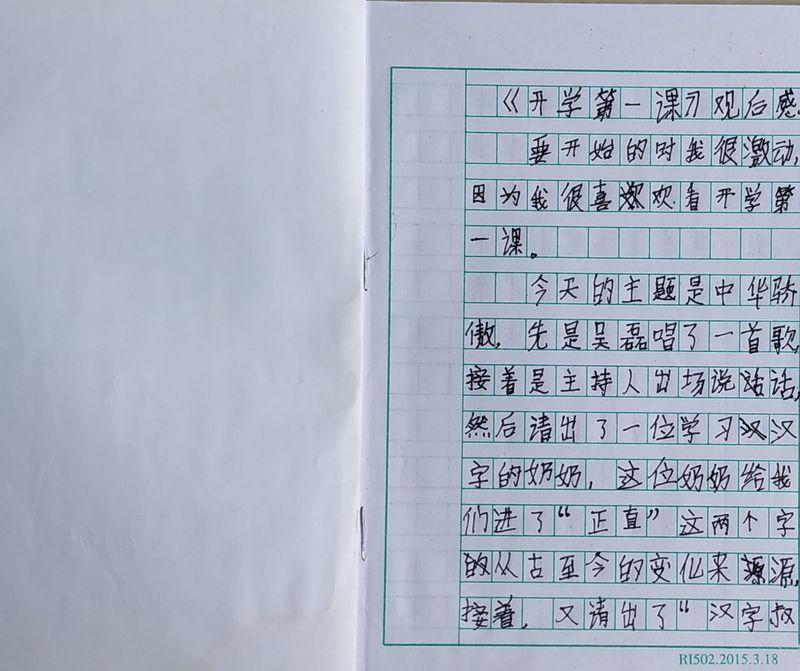 《开学第一课》观后感
要开始的时我很激动,
因为我很喜欢看开学第
一课。
今天的主题是中华骄
傲,先是吴磊唱了一首歌,
接着是主持人出场说话,
然后请出了一位学习汉
字的奶奶,这位奶奶给我
们进了“正直”这两个字
的从古至今的变化来源,
接着,又请出了“汉字叔
RI502.2015.3.18